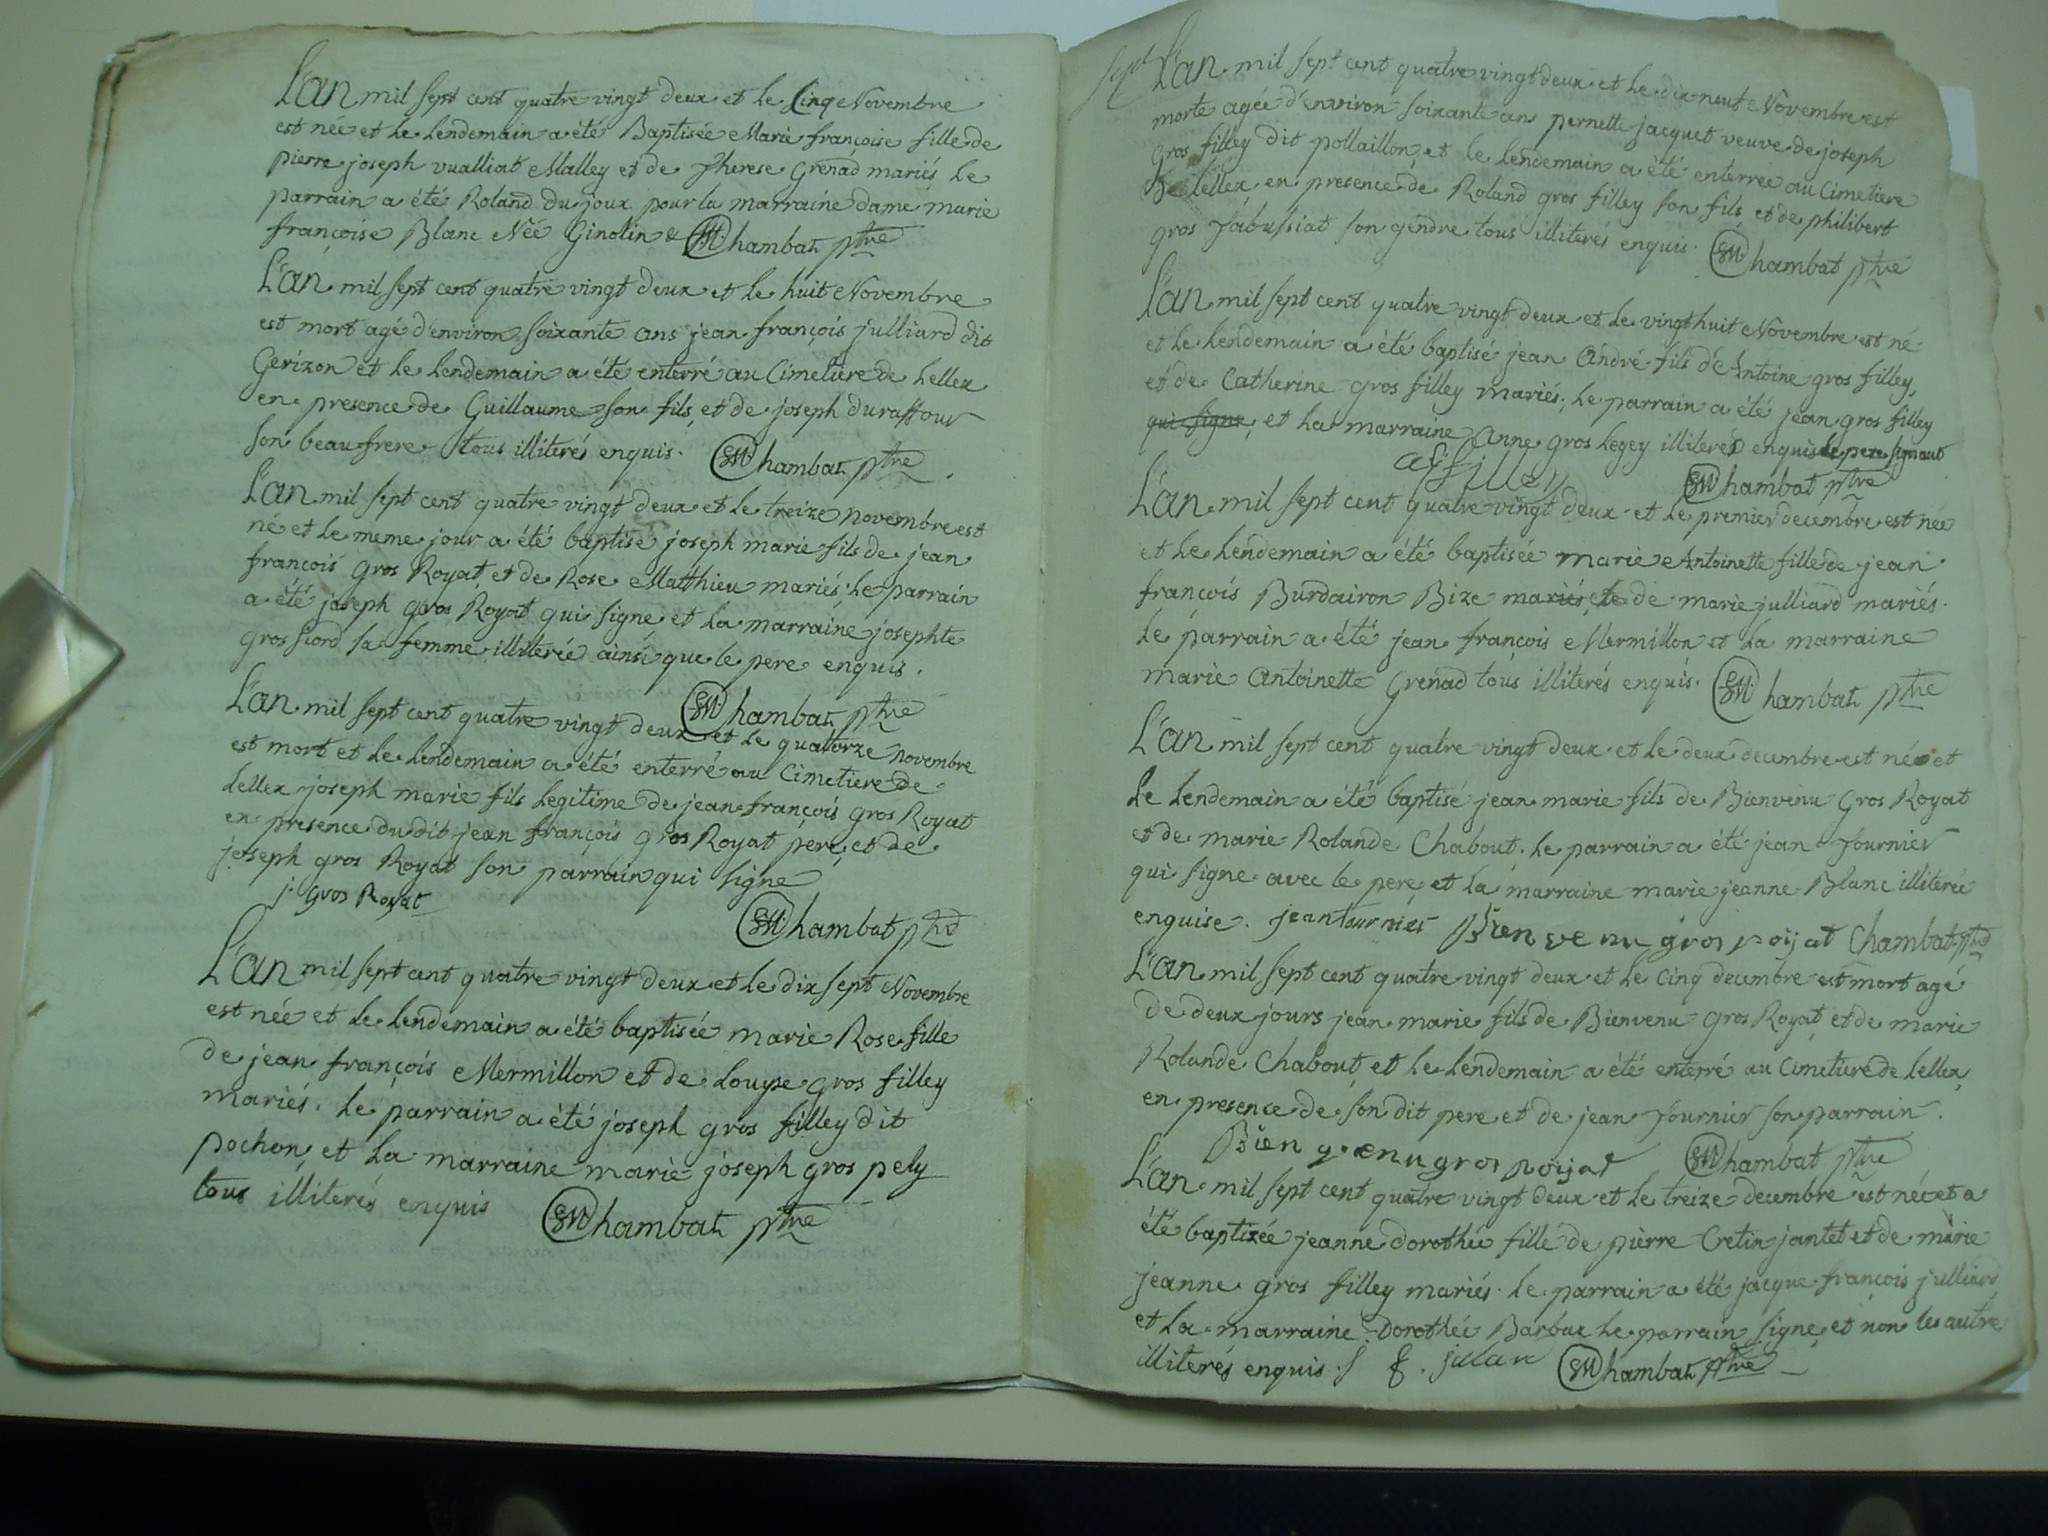 L'an mil sept cent quatre vingt deux et le Cinq Novembre
est née et le lendemain a été Baptisée Marie françoise fille de
pierre joseph vualliat Malley et de Therese Grenad mariés, le
parrain a été Roland Dujoux pour la marraine dame marie
françoise Blanc Née Ginolin & Chambat ptre
L'an mil sept cent quatre vingt deux et le huit Novembre
est mort agé d'environ soixante ans jean françois julliard dit
Gerizon et le lendemain a été enterré au Cimetiere de Lellex
en presence de Guillaume son fils, et de joseph duraffour
son beaufrere tous illiterés enquis. Chambat ptre
L'an mil sept cent quatre vingt deux et le treize novembre est
né et le meme jour a été baptisé joseph marie fils de jean
françois Gros Royat, et de Rose Matthieu mariés; le parrain
a été joseph gros Royat qui signe et la marraine josephte
gros fiord sa femme illiterée ainsi que le pere enquis.
Chambat ptre
L'an mil sept cent quatre vingt deux et le quatorze novembre
est mort et le lendemain a été enterré au Cimetiere de
Lellex joseph marie fils legitime de jean françois gros Royat
en presence du dit jean françois gros Royat pere, et de
joseph gros Royat son parrain qui signe
j. Gros Royat
Chambat ptre
L'an mil sept cent quatre vingt deux et le dix sept Novembre
est née et le lendemain a été baptisée marie Rose fille
de jean françois Mermillon et de Louyse gros filley
mariés. le parrain a été joseph gros filley dit
pochon, et la marraine marie joseph gros pely
tous illiterés enquis Chambat ptre
L'an mil sept cent quatre vingt deux et le dix neuf Novembre est
morte agée d'environ soixante ans pernette jacquet veuve de joseph
gros filley dit pollaillon, et le lendemain a été enterrée au Cimetiere
De lellex, en presence de Roland gros filley son fils, et de philibert
gros fabussiat son gendre tous illiterés enquis. Chambat ptre
L'an mil sept cent quatre vingt deux et le vingt huit Novembre est né
et le lendemain a été baptisé jean André fils d'Antoine gros filley,
et de Catherine gros filley mariés; le parrain a été jean gros filley
qui signe, et la marraine Anne gros Legey illiterés enquis le pere signant
agfilley
Chambat ptre
L'an mil sept cent quatre vingt deux et le premier decembre est née
et le lendemain a été baptisée marie Antoinette fille de jean
françois Burdairon Bize mariés, et de marie julliard mariés.
le parrain a été jean françois Mermillon et la marraine
marie Antoinette Grenad tous illiterés enquis. Chambat ptre
L'an mil sept cent quatre vingt deux et le deux decembre est né et
le lendemain a été baptisé jean marie fils de Bienvenu Gros Royat
et de marie Rolande Chabout. le parrain a été jean fournier
qui signe avec le pere, et la marraine marie jeanne Blanc illiterée
enquise. jean fournier Bien ve nu gros roijat Chambat ptre
L'an mil sept cent quatre vingt deux et le cinq decembre est mort agé
de deux jours jean marie fils de Bienvenu Gros Royat, et de marie
Rolande Chabout, et le lendemain a été enterré au Cimetiere de Lellex,
en presence de son dit pere et de jean fournier son parrain.
Bien venu gros roijat Chambat ptre
L'an mil sept cent quatre vingt deux et le treize decembre est née et a
été baptisée jeanne dorothée fille de pierre Cretin jantet et de marie
jeanne gros filley mariés. le parrain a été jacque françois julliard
et la marraine Dorothée Barbue le parrain signe, et non les autre
illiterés enquis. Chambat ptre